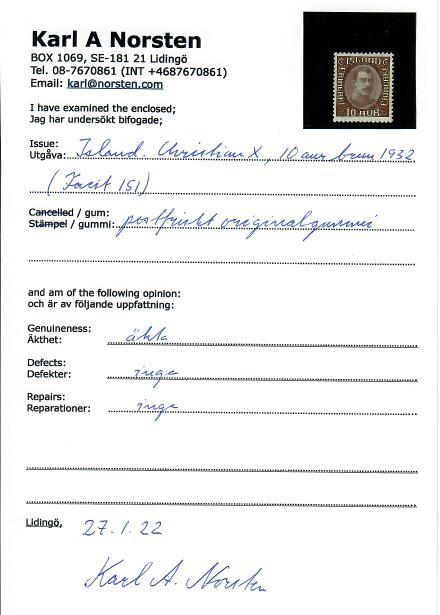 Karl A Norsten
BOX 1069, SE-181 21 Lidingö
Tel. 08-7670861 (INT +4687670861)
Email: karl@norsten.com
ISLAND
10 AUR
I have examined the enclosed;
Jag har undersökt bifogade;
Issue:
Utgåva: Island, Christian X, 10 aur brun 1932
(Facit 151)
Cancelled / gum:
Stämpel / gummi: postfriskt originalgummi
and am of the following opinion:
och är av följande uppfattning:
Genuineness:
Äkthet: äkta
Defects:
Defekter: inga
Repairs:
Reparationer: inga
Lidingö, 27.1.22
Karl A. Norsten